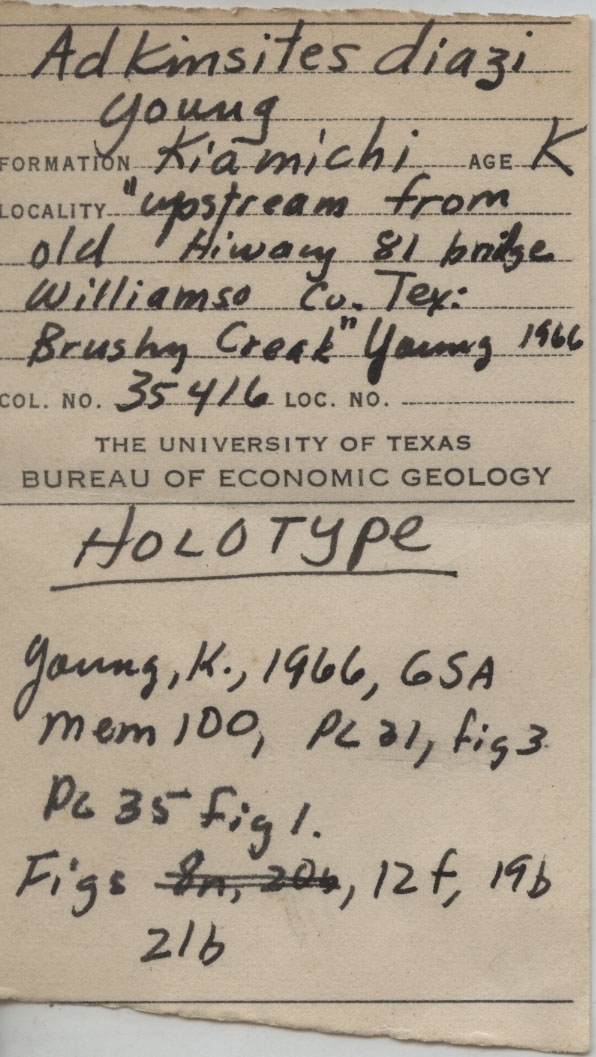 Adkinsites diazi
Young
FORMATION Kiamichi AGE K
LOCALITY "upstream from
old Hiway 81 bridge
Williamso Co. Tex:
Brushy Creek" Young 1966
COL. NO. 35416 LOC. NO.
THE UNIVERSITY OF TEXAS
BUREAU OF ECONOMIC GEOLOGY
HOLOTYPE
Young, K., 1966, GSA
mem 100, PL 21, fig 3
PL 35 fig 1.
Figs 8n, 20b, 12f, 19b
21b